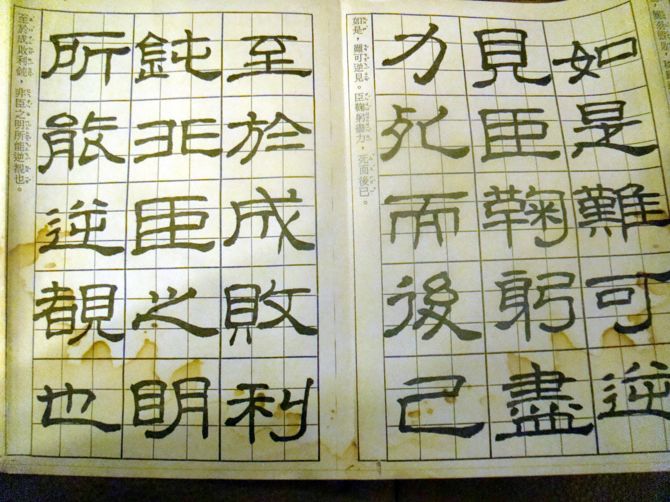 如是難可逆
見臣鞠躬盡
力死而後已
如是,難可逆見。臣鞠躬盡力,死而後已。
至於成敗利
鈍非臣之明
所能逆覩也
至於成敗利鈍,非臣之明所能逆覩也。